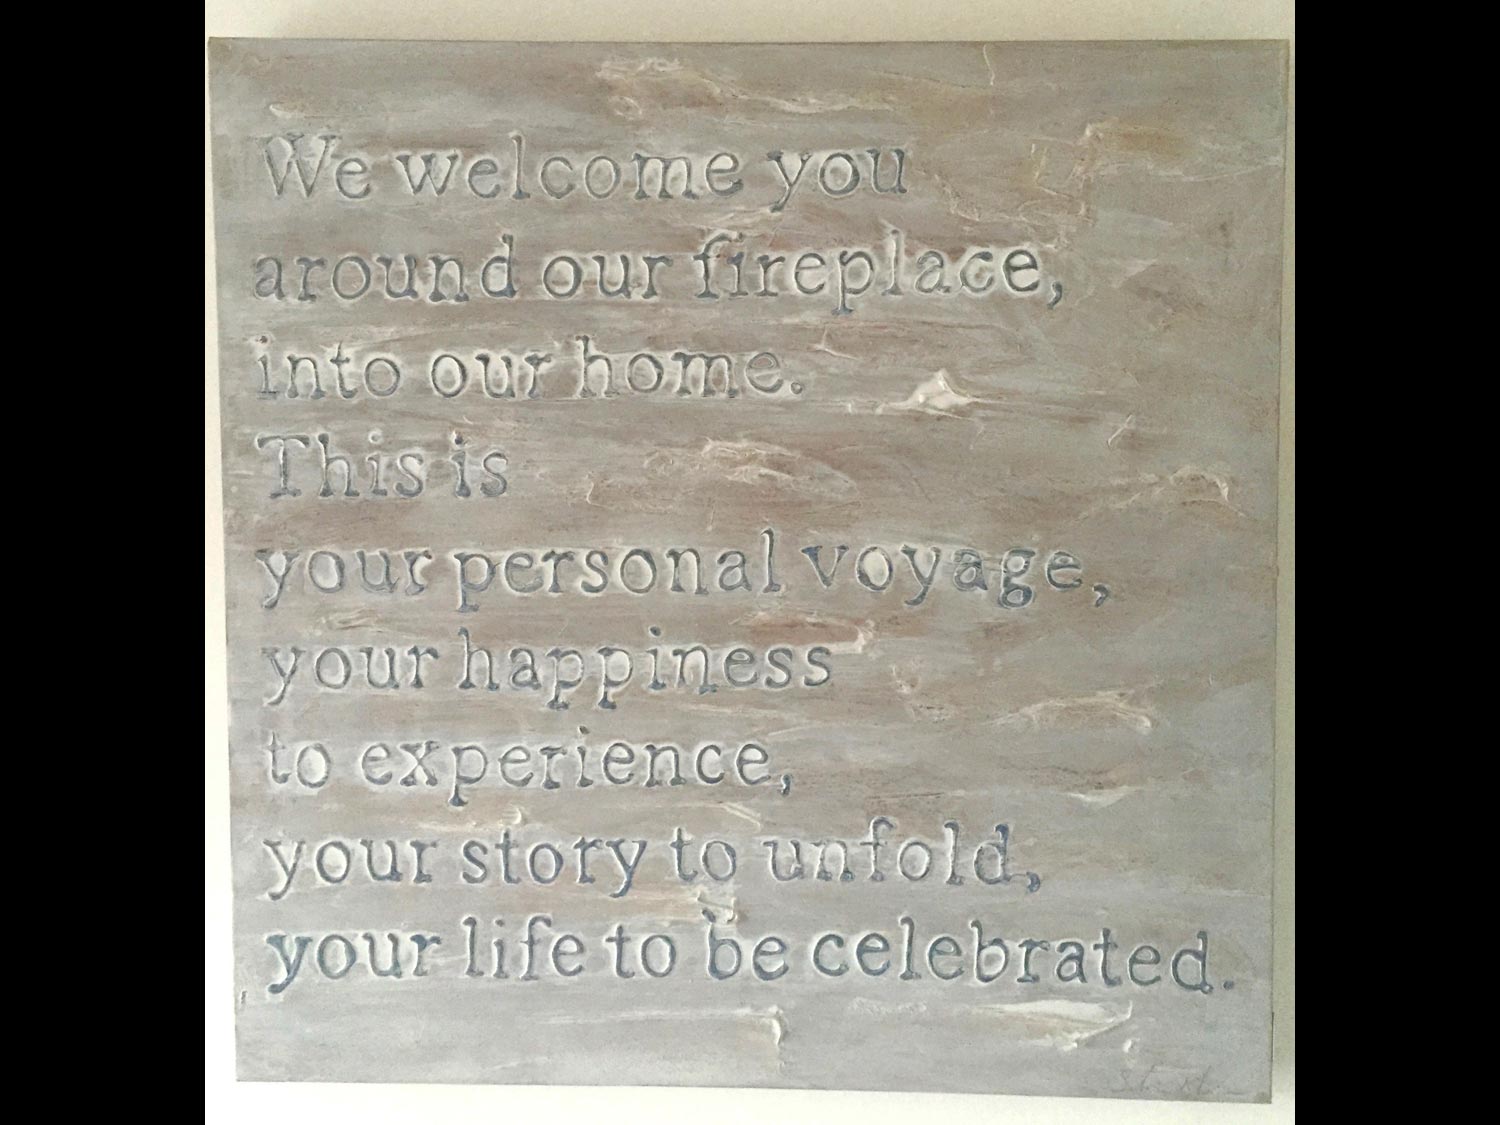 We welcome you
around our fireplace,
into our home.
This is
your personal voyage,
your happiness
to experience,
your story to unfold,
your life to be celebrated.